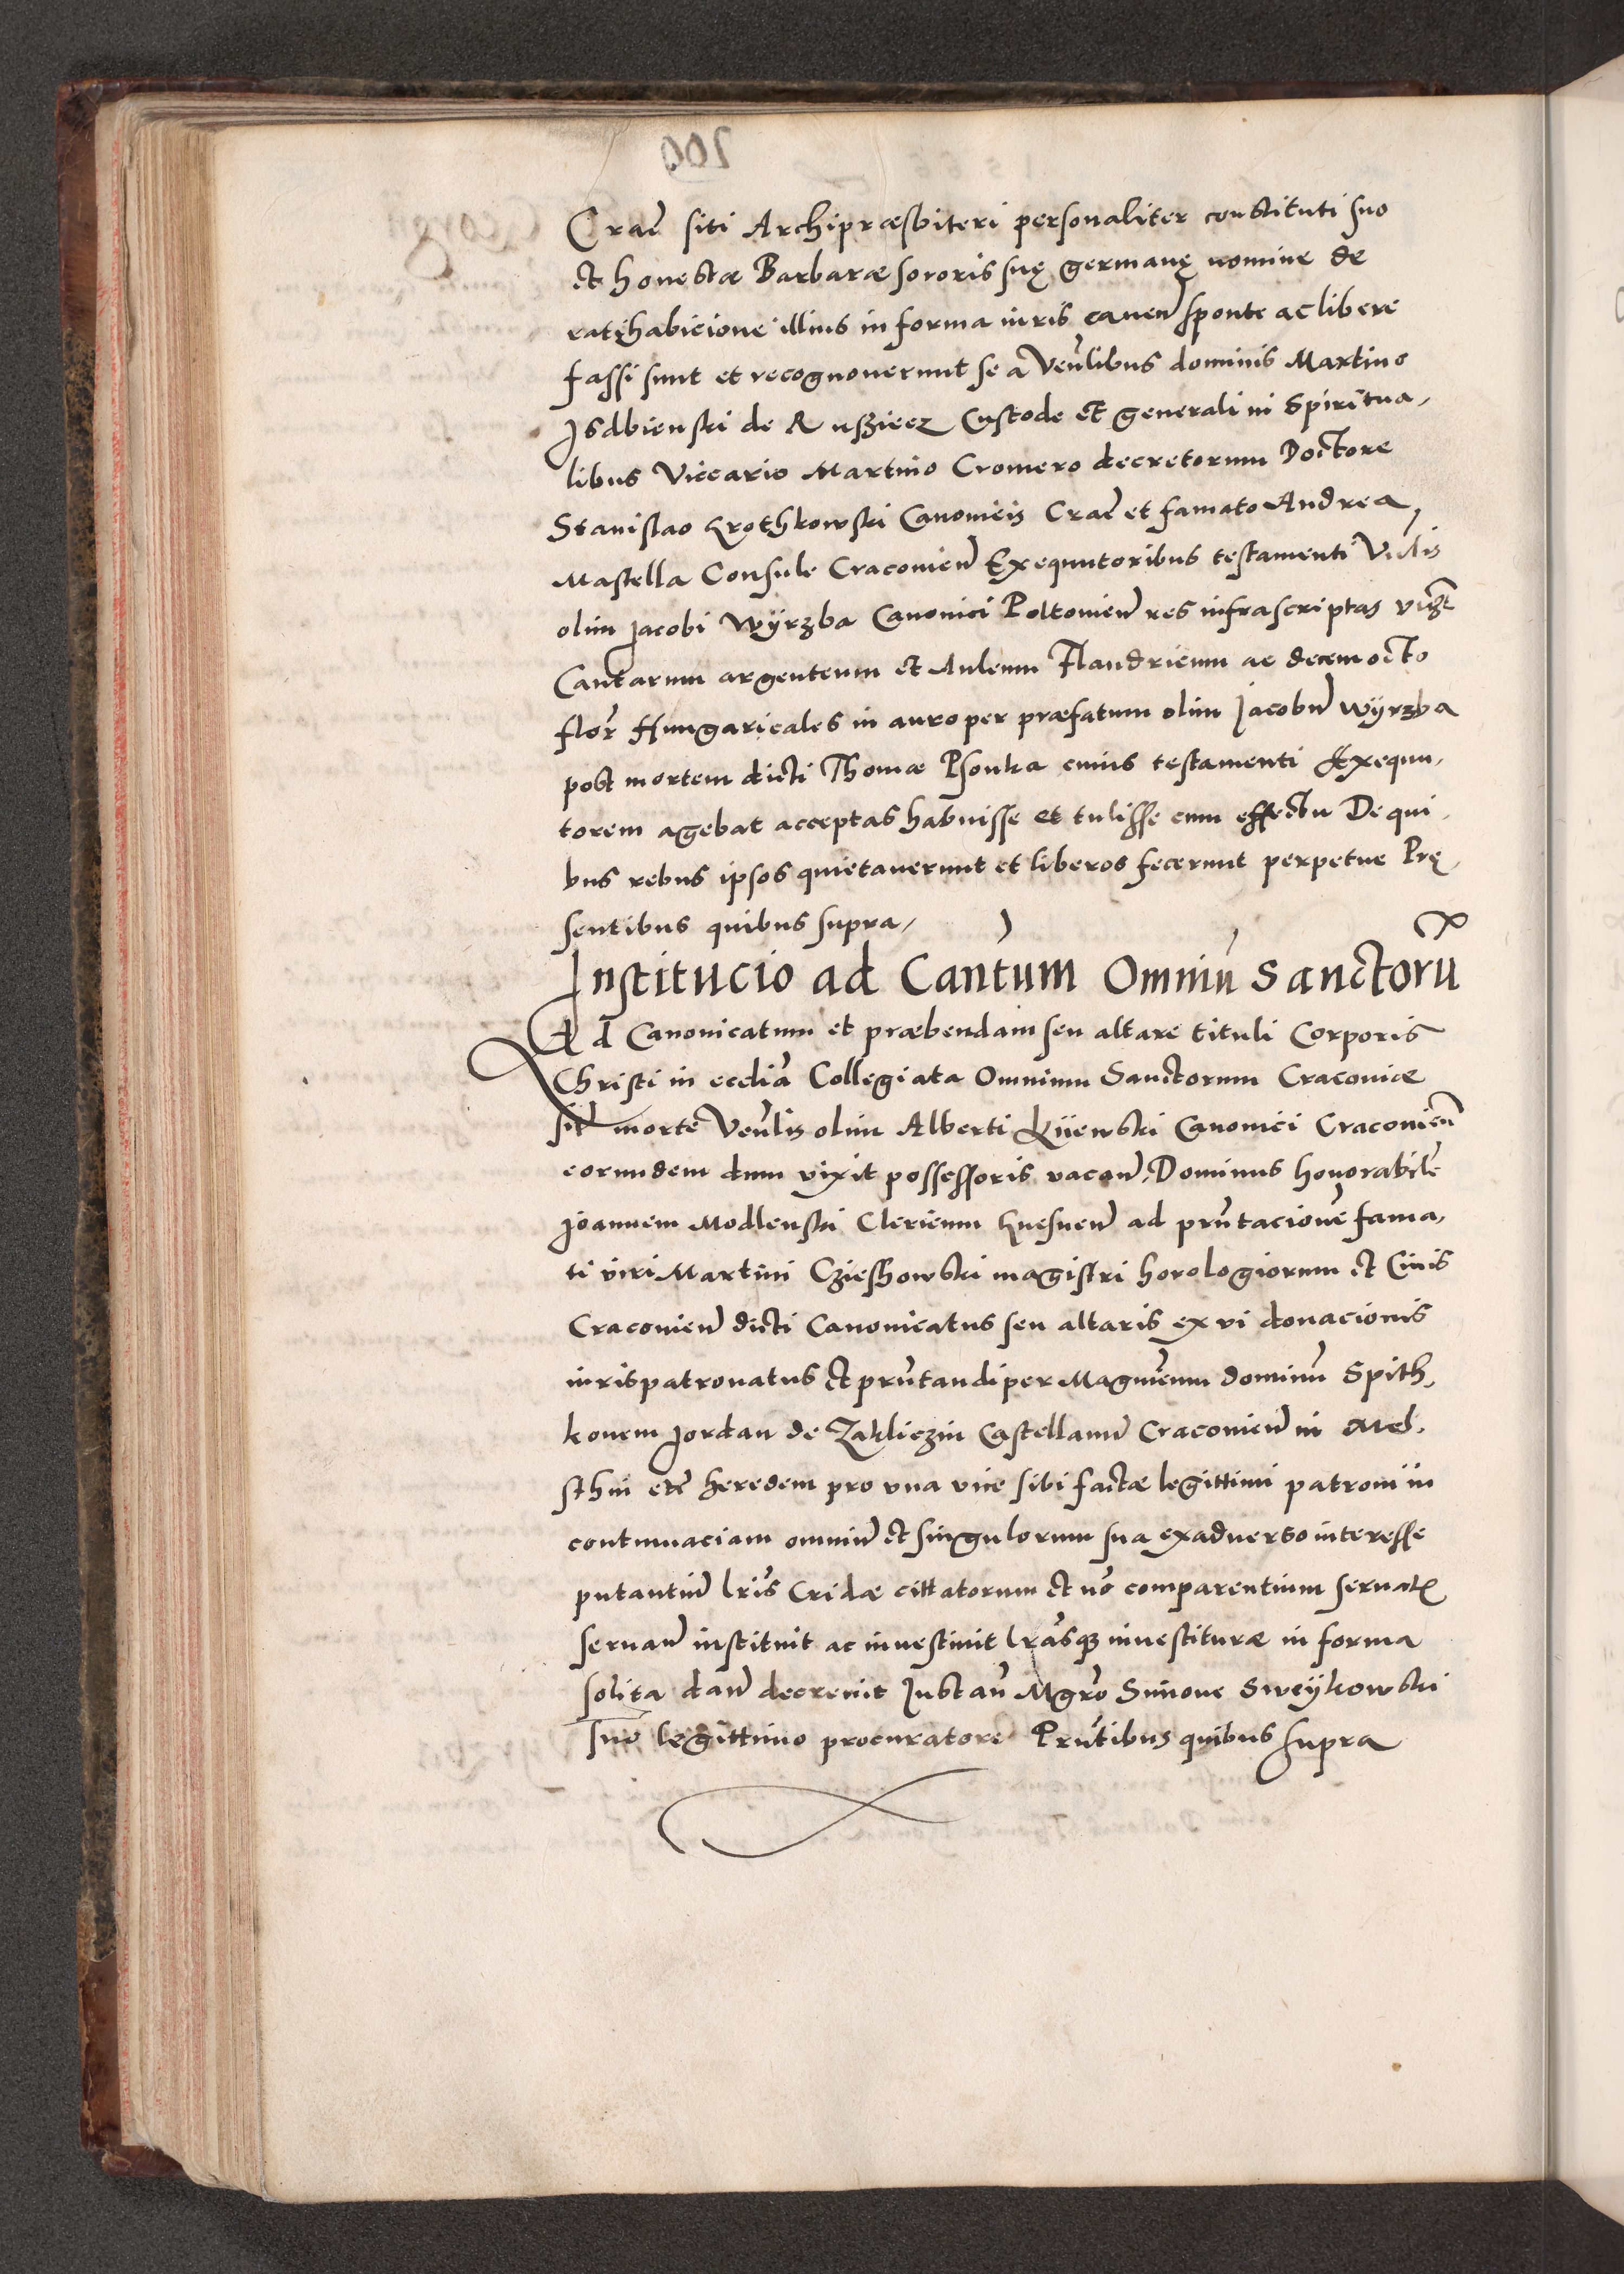 Cracˉ siti Archipræsbiteri personaliter constituti suo
et honestæ Barbaræ sororis suę germanę nomine de
ratihabicione illius in forma iuris canenˉ sponte ac libere
fassi sunt et recognoverunt se a Venˉlibus dominis Martino
Isdbienski de Ruszieez Custode et generali in Spiritua,
libus Viccario Martino Cromero decretorum Doctore
Stanislao Krothkowski Canonicis Cracˉ et famato Andrea
Mastella Consule Craconienˉ Exequutoribus testamenti Vnˉlis
olim Jacobi Wÿrzba Canonici Poltonienˉ res infrascriptas vizt
Cantarum argenteum et Auleum Flandricum ac decemocto
florˉ Hungaricales in auro per præfatum olim Jacobuˉ Wÿrzba
post mortem dicti Thomæ Psonka cuius testamenti Exequu,
torem agebat acceptas habuisse et tulisse cum effectu De qui,
bus rebus ipsos quietaverunt et liberos fecerunt perpetue Prę,
sentibus quibus supra,
Institucio ad Cantum Omniuˉ Sanctoruˉ
Ad Canonicatum et præbendam seu altare tituli Corporis
Christi in ecclˉia Collegiata Omnium Sanctorum Cracoviæ
sitˉ morte Venˉlis olim Alberti Kÿewski Canonici Cracovienˉ
eorundem dum vixit possessoris vacanˉ, Dominus honorabileˉ
Joannem Modlenski Clericum Gnesnenˉ ad prnˉtacioneˉ fama,
ti viri Martini Czieshowski magistri horologiorum et Civis
Cracovienˉ dicti Canonicatus seu altaris ex vi donacionis
iurispatronatus et prnˉtandi per Magnificum dominuˉ Spith,
konem Jordan de Zakliczin Castellanuˉ Cracovienˉ in Mel,
sthin etcˉ heredem pro una vice sibi factæ legittimi patroni in
contumaciam omniuˉ et singulorum sua exadverso interesse
putantiuˉ lrˉis Cridæ cittatorum et noˉ comparentium servatˉ
servanˉ instituit ac investivit lrˉasque investituræ in forma
solita danˉ decrevit Instanˉ Mgrˉo Simone Sweÿkowski
suo legittimo procuratore Prnˉtibus quibus supra